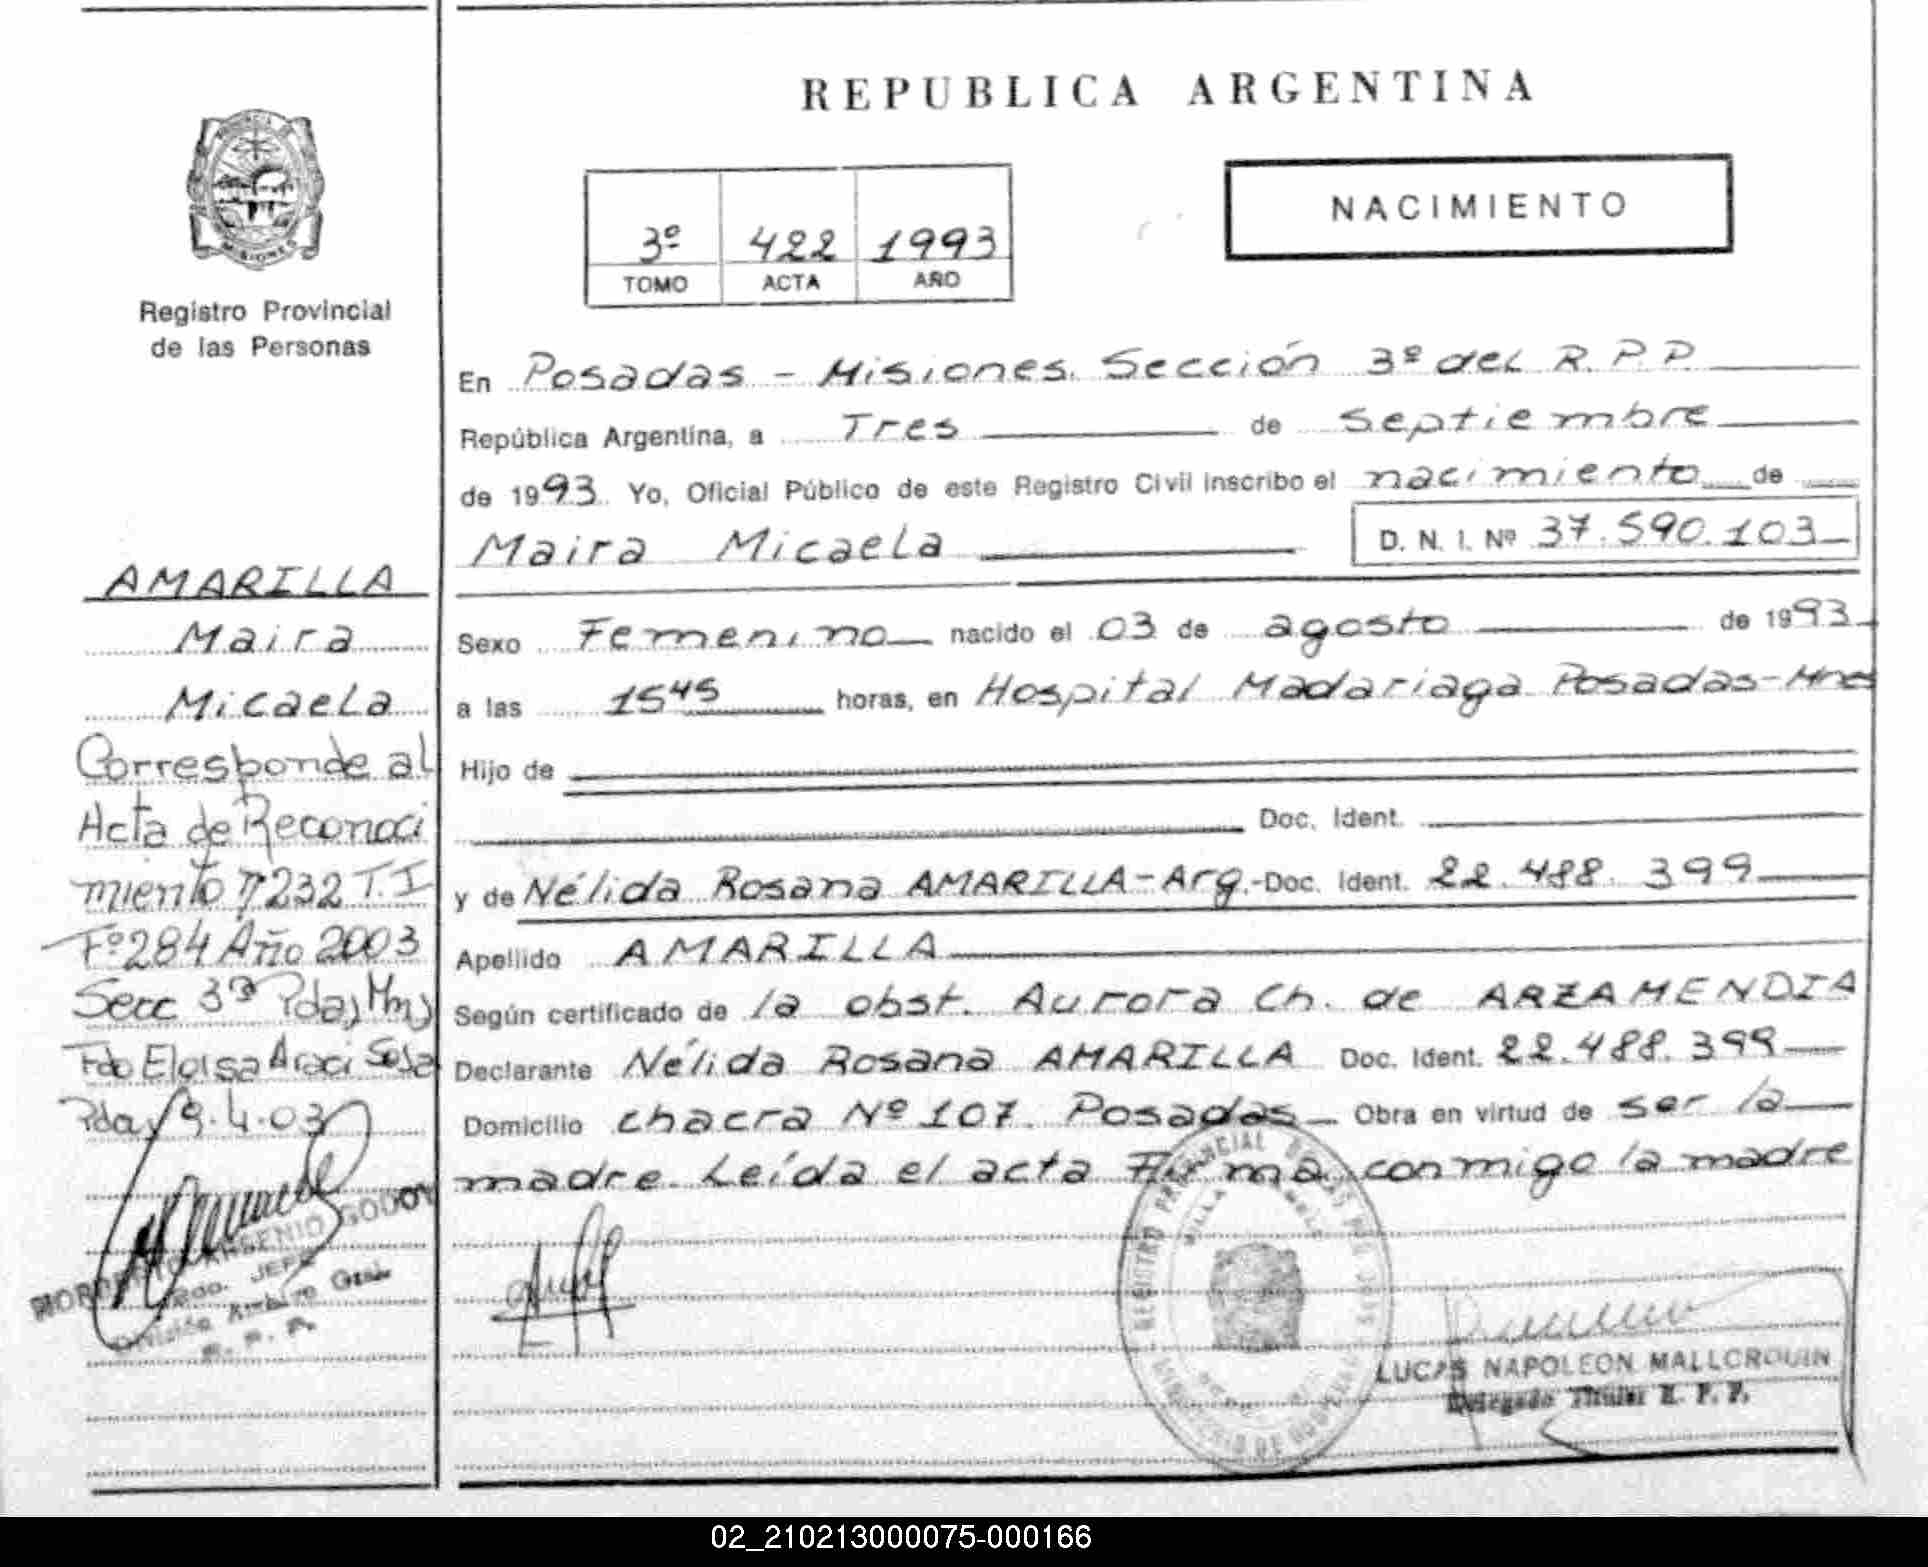 REPUBLICA ARGENTINA
NACIMIENTO
3º 422 1993
TOMO ACTA AÑO
Registro Provincial
de las Personas
En Posadas - Misiones. Sección 3º del R.P.P.
República Argentina, a Tres de Septiembre
de 1993. Yo, Oficial Público de este Registro Civil inscribo el nacimiento de
Maira Micaela D. N. I. Nº 37.590.103
Sexo Femenino nacido el 03 de agosto de 1993
a las 15 45 horas, en Hospital Madariaga Posadas-Mnes
Hijo de
Doc. Ident.
y de Nélida Rosana AMARILLA-Arg.-Doc. Ident. 22.488.399
Apellido AMARILLA
Según certificado de la obst. Aurora Ch. de ARZAMENDIA
Declarante Nélida Rosana AMARILLA Doc. Ident. 22.488.399
Domicilio chacra Nº 107. Posadas Obra en virtud de ser la
madre. Leída el acta Firma conmigo la madre
AMARILLA
Maira
Micaela
Corresponde al
Acta de Reconoci
miento nº 232 T. I
Fº 284 Año 2003
Secc 3ª Pdas Mns
Fdo Eloisa Araci Sosa
Pdas 9.4.03
ARSENIO GODOY
JEFE
División
LUCAS NAPOLEON MALLORQUIN
Delegado Titular R. P. P.
REGISTRO PROVINCIAL DE LAS PERSONAS
MINISTERIO DE GOBIERNO
02_210213000075-000166